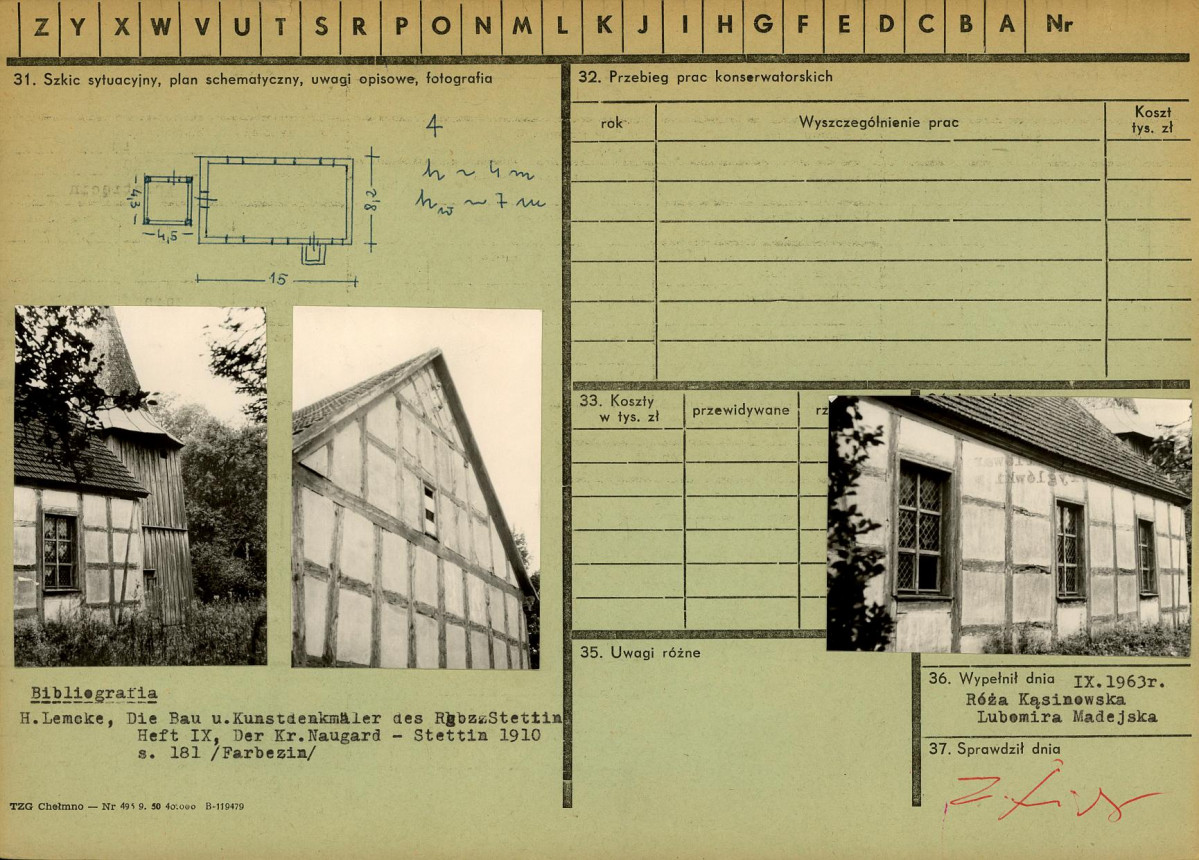 Z Y X W V U T S R P O N M L K J I H G F E D C B A Nr
31. Szkic sytuacyjny, plan schematyczny, uwagi opisowe, fotografia
4
h ~ 4 m
hw ~ 7 m
4,3
4,5
8,2
15
Bibliografia
H.Lemcke, Die Bau u.Kunstdenkmäler des RgbzzStettin
Heft IX, Der Kr.Naugard - Stettin 1910
s. 181 /Farbezin/
TZG Chełmno — Nr 495 9. 50 40.000 B-119479
32. Przebieg prac konserwatorskich
rok
Wyszczególnienie prac
Koszt
tys. zł
33. Koszty
w tys. zł
przewidywane
rz
35. Uwagi różne
36. Wypełnił dnia IX.1963r.
Róża Kąsinowska
Lubomira Madejska
37. Sprawdził dnia